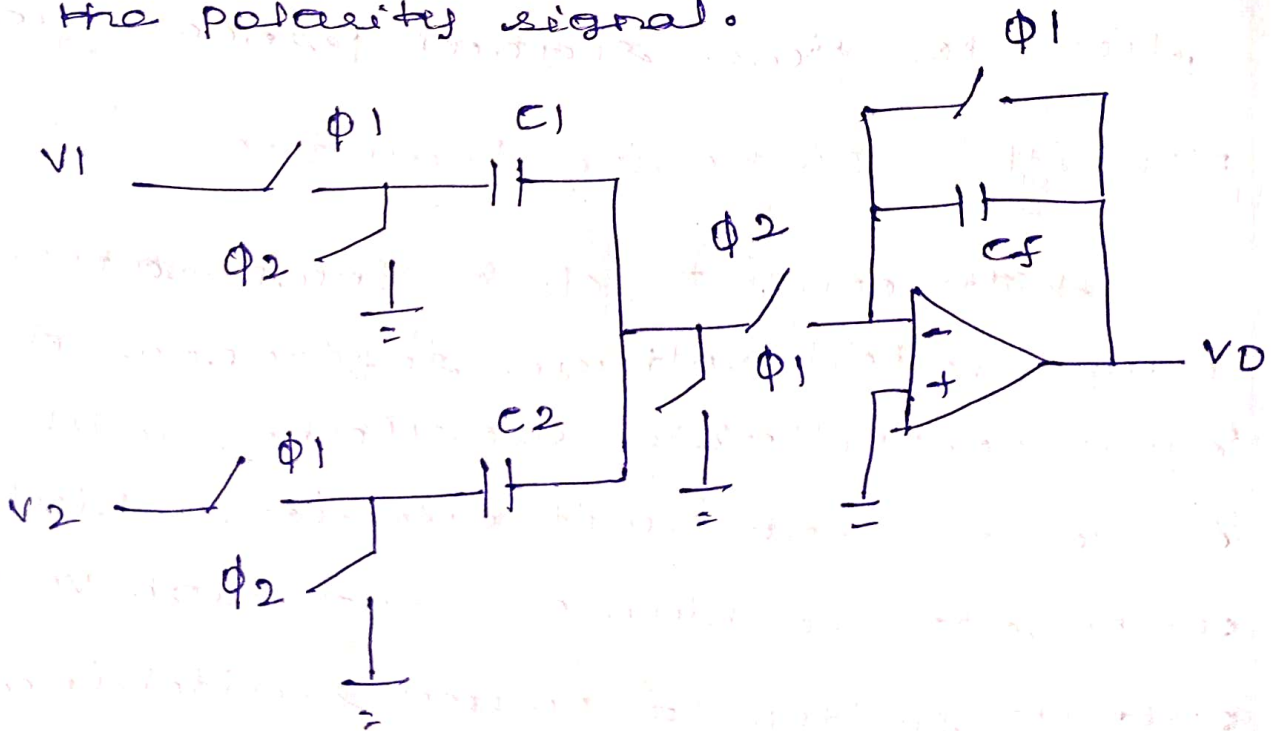 the polarity signal.
φ1
φ1
C1
V1
φ2
φ2
Cf
-
φ1
+
VO
C2
φ1
V2
φ2